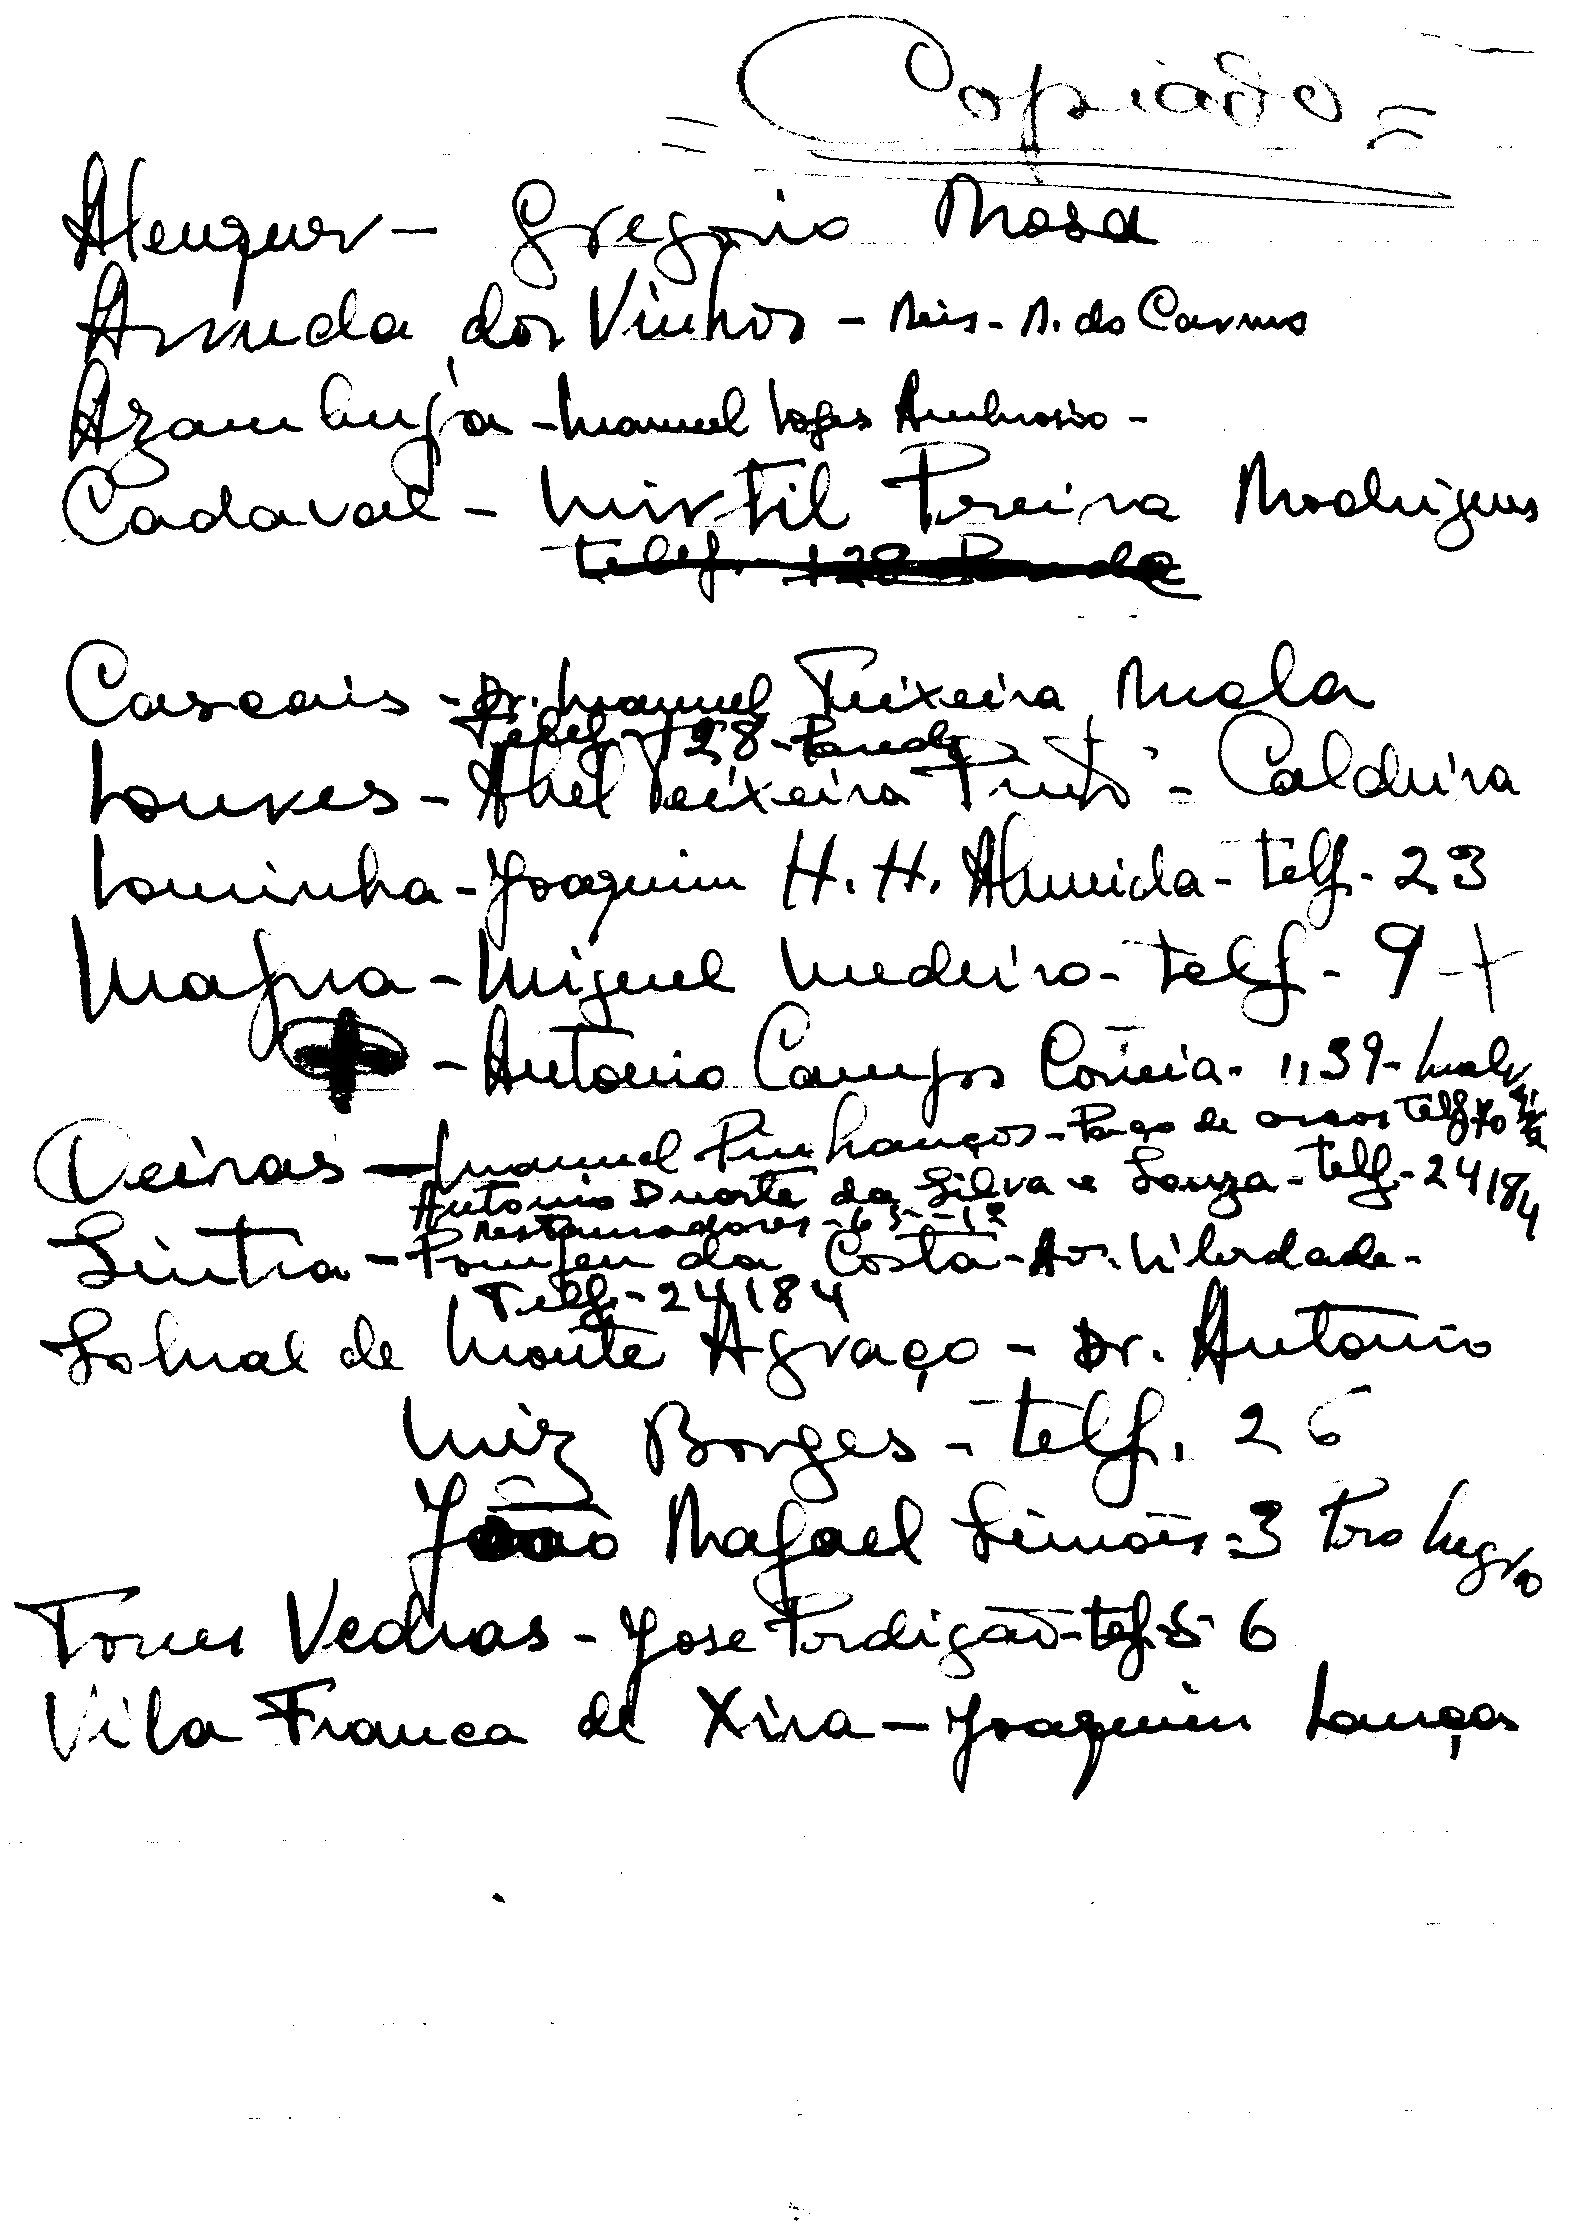 = Copiado =
Alenquer - Gregorio Rosa
Arruda dos Vinhos - Reis - R. do Carmo
Azambuja - Manuel Lopes Ambrosio -
Cadaval - Mirtil Pereira Rodrigues
Telf. 128 Parede
Cascais - Dr. Manuel Teixeira
Telef - 128 - Parede
Loures - Abel Teixeira Pinto - Caldeira
Lourinha - Joaquim H. H. Almeida - telf. - 23
Mafra - Miguel Medeiro - telf - 9 - +
- Antonio Campos Correia - 1,, 39 -
Oeiras - Manuel Pinhanços - Paço de Arcos Telf 70
Antonio Duarte da Silva e Souza - telf. - 24184
Restauradores - 63 - - 12
Sintra - Pompeu da Costa - Av. Liberdade -
Telf. - 24184
Sobral de Monte Agraço - Dr. Antonio
Luiz Borges - telf. 26
João Rafael Simões - 3 Pero Negro
Torres Vedras - Jose Perdigão - telf. 56
Vila Franca de Xira - Joaquim Lanças